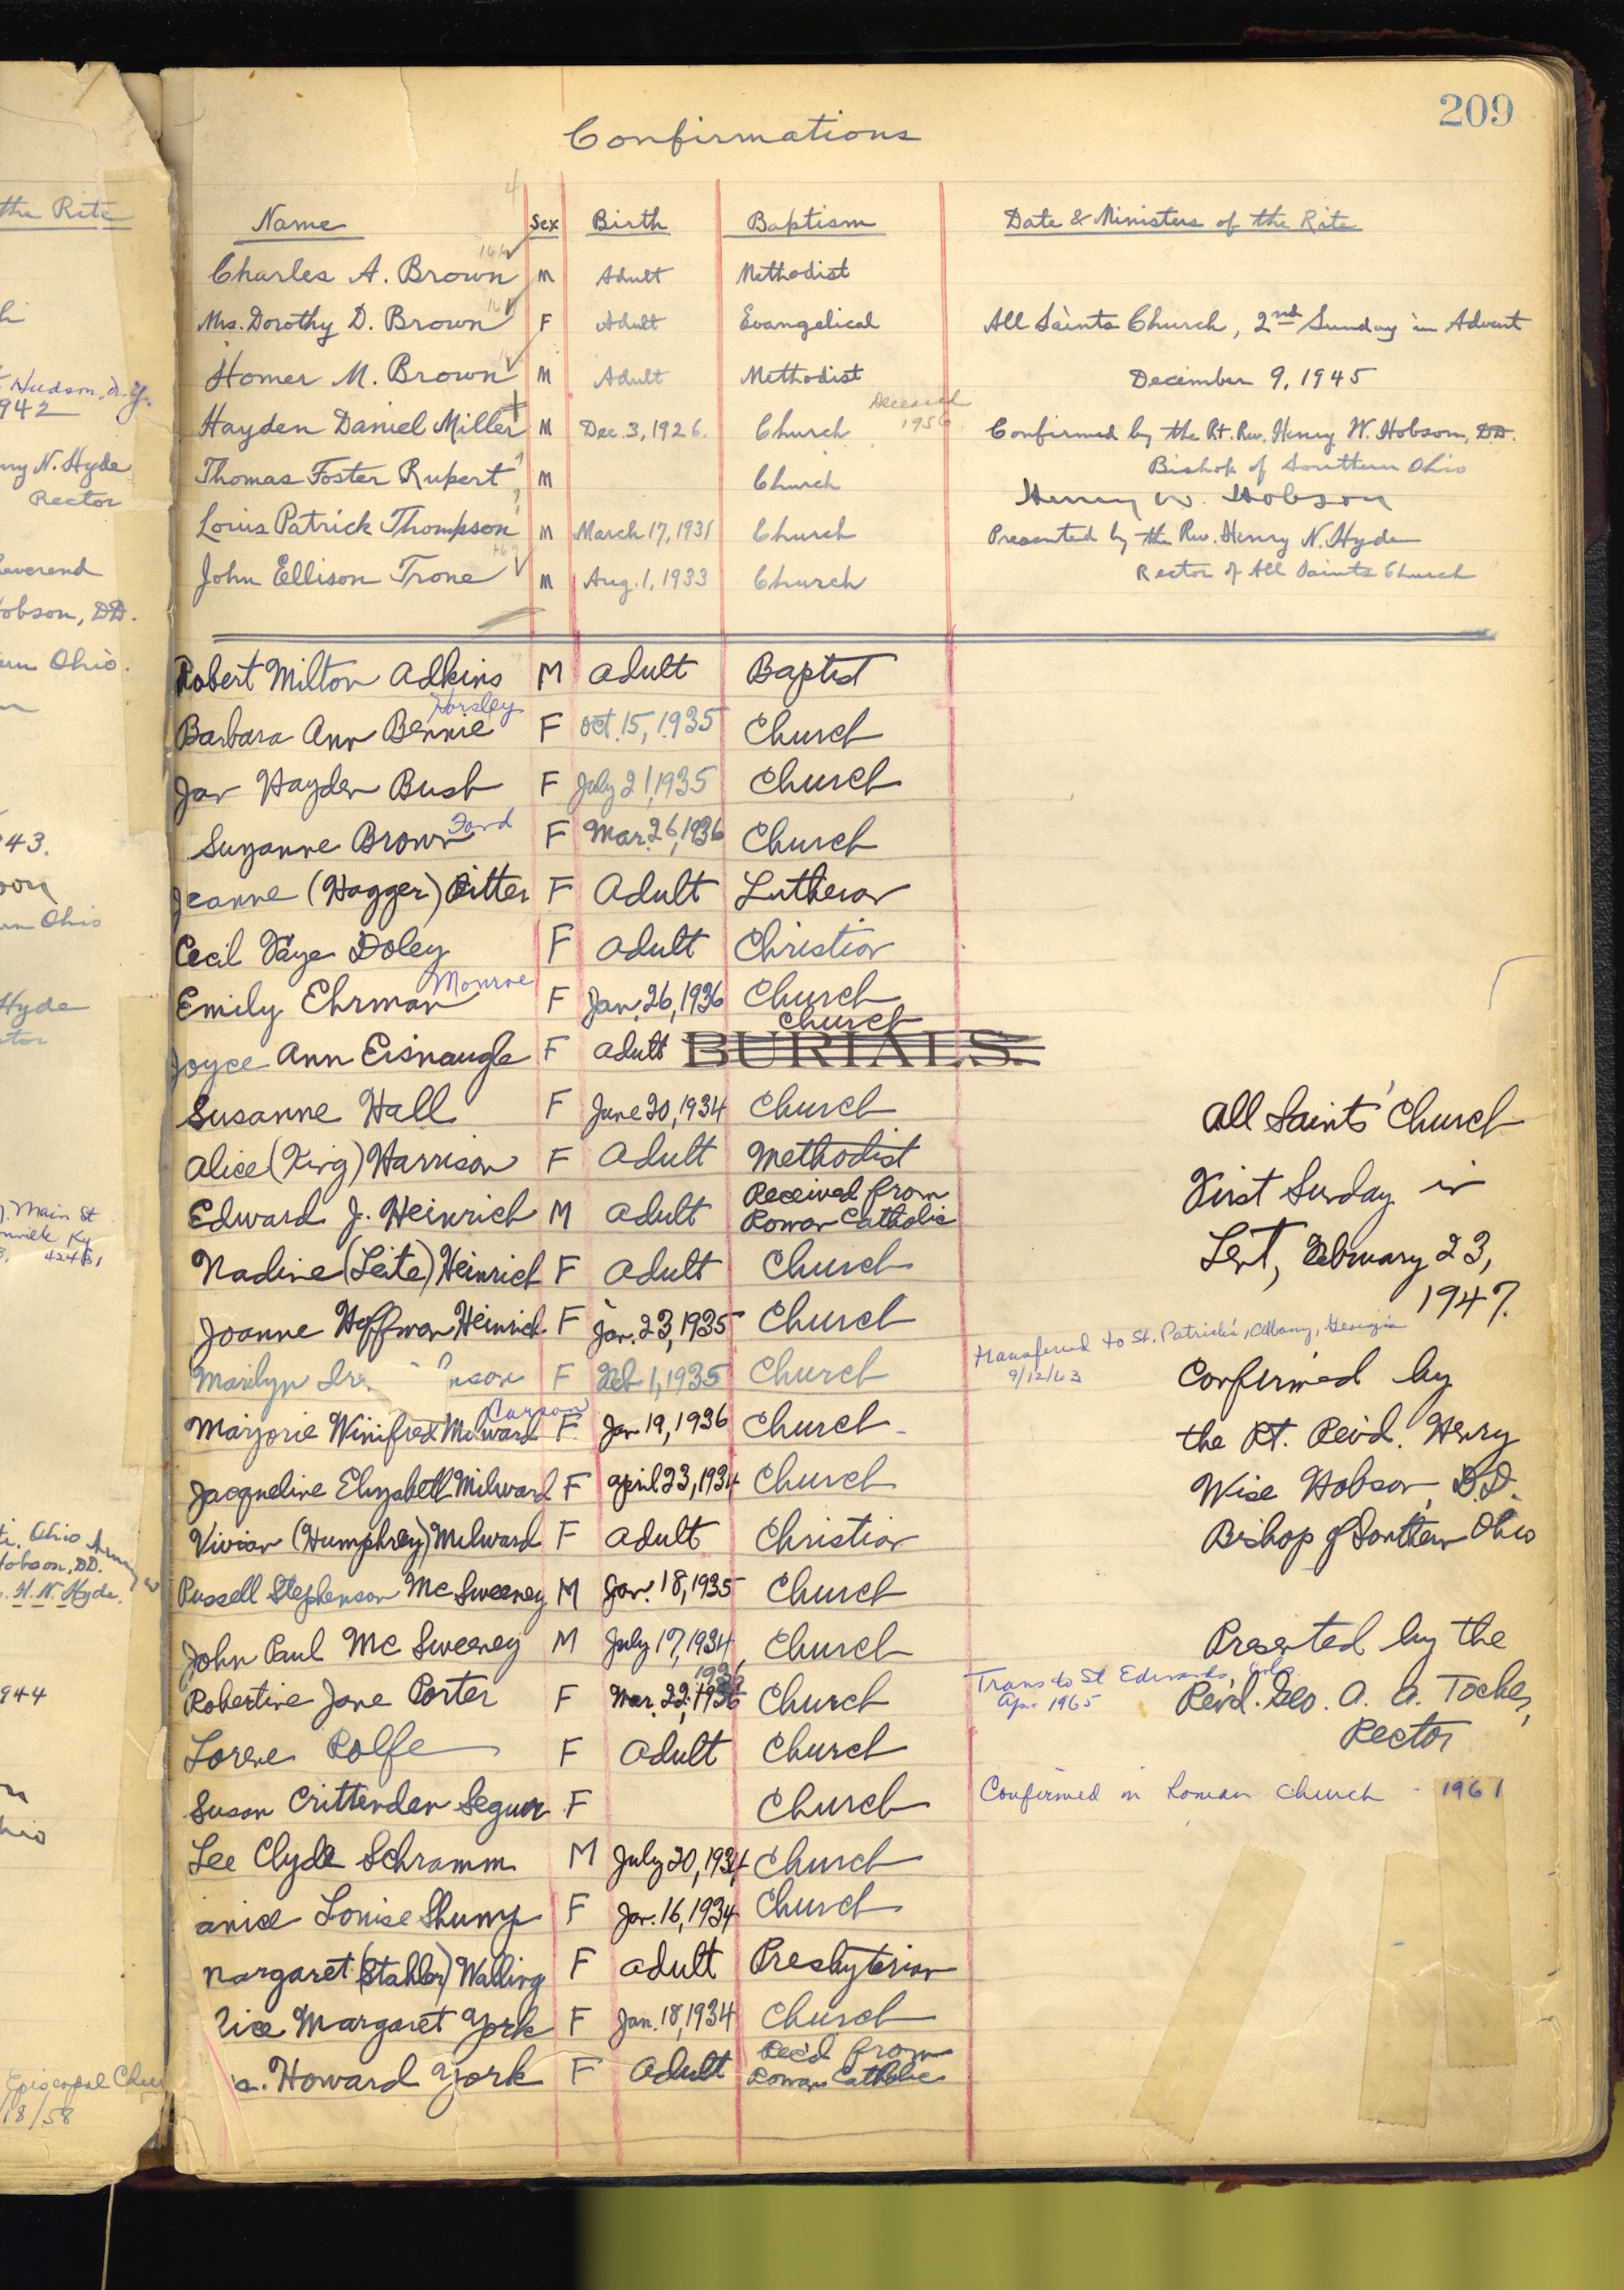 209
Confirmations
Name Sex Birth Baptism Date & Ministers of the Rite
Charles A. Brown M Adult Methodist
Mrs. Dorothy D. Brown F Adult Evangelical All Saints Church, 2nd Sunday in Advent
Homer M. Brown M Adult Methodist December 9, 1945
Deceased
Hayden Daniel Miller M Dec. 3, 1926. Church Confirmed by the Rt. Rev. Henry W. Hobson, DD.
Bishop of Southern Ohio
Thomas Foster Rupert M Church
Henry W. Hobson
Louis Patrick Thompson M March 17, 1931 Church Presented by the Rev. Henry N. Hyde
John Ellison Trone M Aug. 1, 1933 Church Rector of All Saints Church
Robert Milton Adkins M Adult Baptist
Horsley
Barbara Ann Bennie F Oct. 15, 1935 Church
Jan Hayden Bush F July 21, 1935 Church
Ford
Suzanne Brown F Mar. 26, 1936 Church
Jeanne (Hagger) Ritter F Adult Lutheran
Cecil Faye Doley F Adult Christian
Monroe
Emily Ehrman F Jan. 26, 1936 Church
Church
Joyce Ann Eisnaugle F Adult BURIALS.
Susanne Hall F June 20, 1934 Church All Saints' Church
Alice (King) Harrison F Adult Methodist First Sunday in
Edward J. Heinrich M Adult Received from
Roman Catholic
Nadine (Leite) Heinrich F Adult Church Lent, February 23,
1947.
Joanne Hoffman Heinrich F Jan. 23, 1935 Church
transferred to St. Patrick's, Albany, Georgia
9/12/63
Marilyn F Feb 1, 1935 Church Confirmed by
Carson
Marjorie Winifred Milward F Jan 19, 1936 Church the Rt. Rev'd. Henry
Jacqueline Elizabeth Milward F April 23, 1934 Church Wise Hobson, D.D.
Vivian (Humphrey) Milward F Adult Christian Bishop of Southern Ohio
Russell Stephenson McSweeney M Jan. 18, 1935 Church
John Paul McSweeney M July 17, 1934 Church Presented by the
Trans to St Edwards,
Apr 1965
Robertine Jane Porter F Mar. 22, 1936 Church Rev'd. Geo. A. A. Tocher,
Rector
Lorene Rolfe F Adult Church
Susan Crittenden Segur F Church Confirmed in Roman Church - 1961
Lee Clyde Schramm M July 20, 1934 Church
anice Louise Shump F Jan. 16, 1934 Church
Margaret (Stahler) Walling F Adult Presbyterian
lice Margaret York F Jan. 18, 1934 Church
Howard York F Adult Rec'd from
Roman Catholic
the Rite
Hudson, N.Y.
942
ry N. Hyde
Rector
everend
obson, DD.
Ohio.
43.
Ohio
Hyde
Main St
Ky
42431
Ohio
Hobson, DD.
H. N. Hyde.
944
Episcopal
18/58